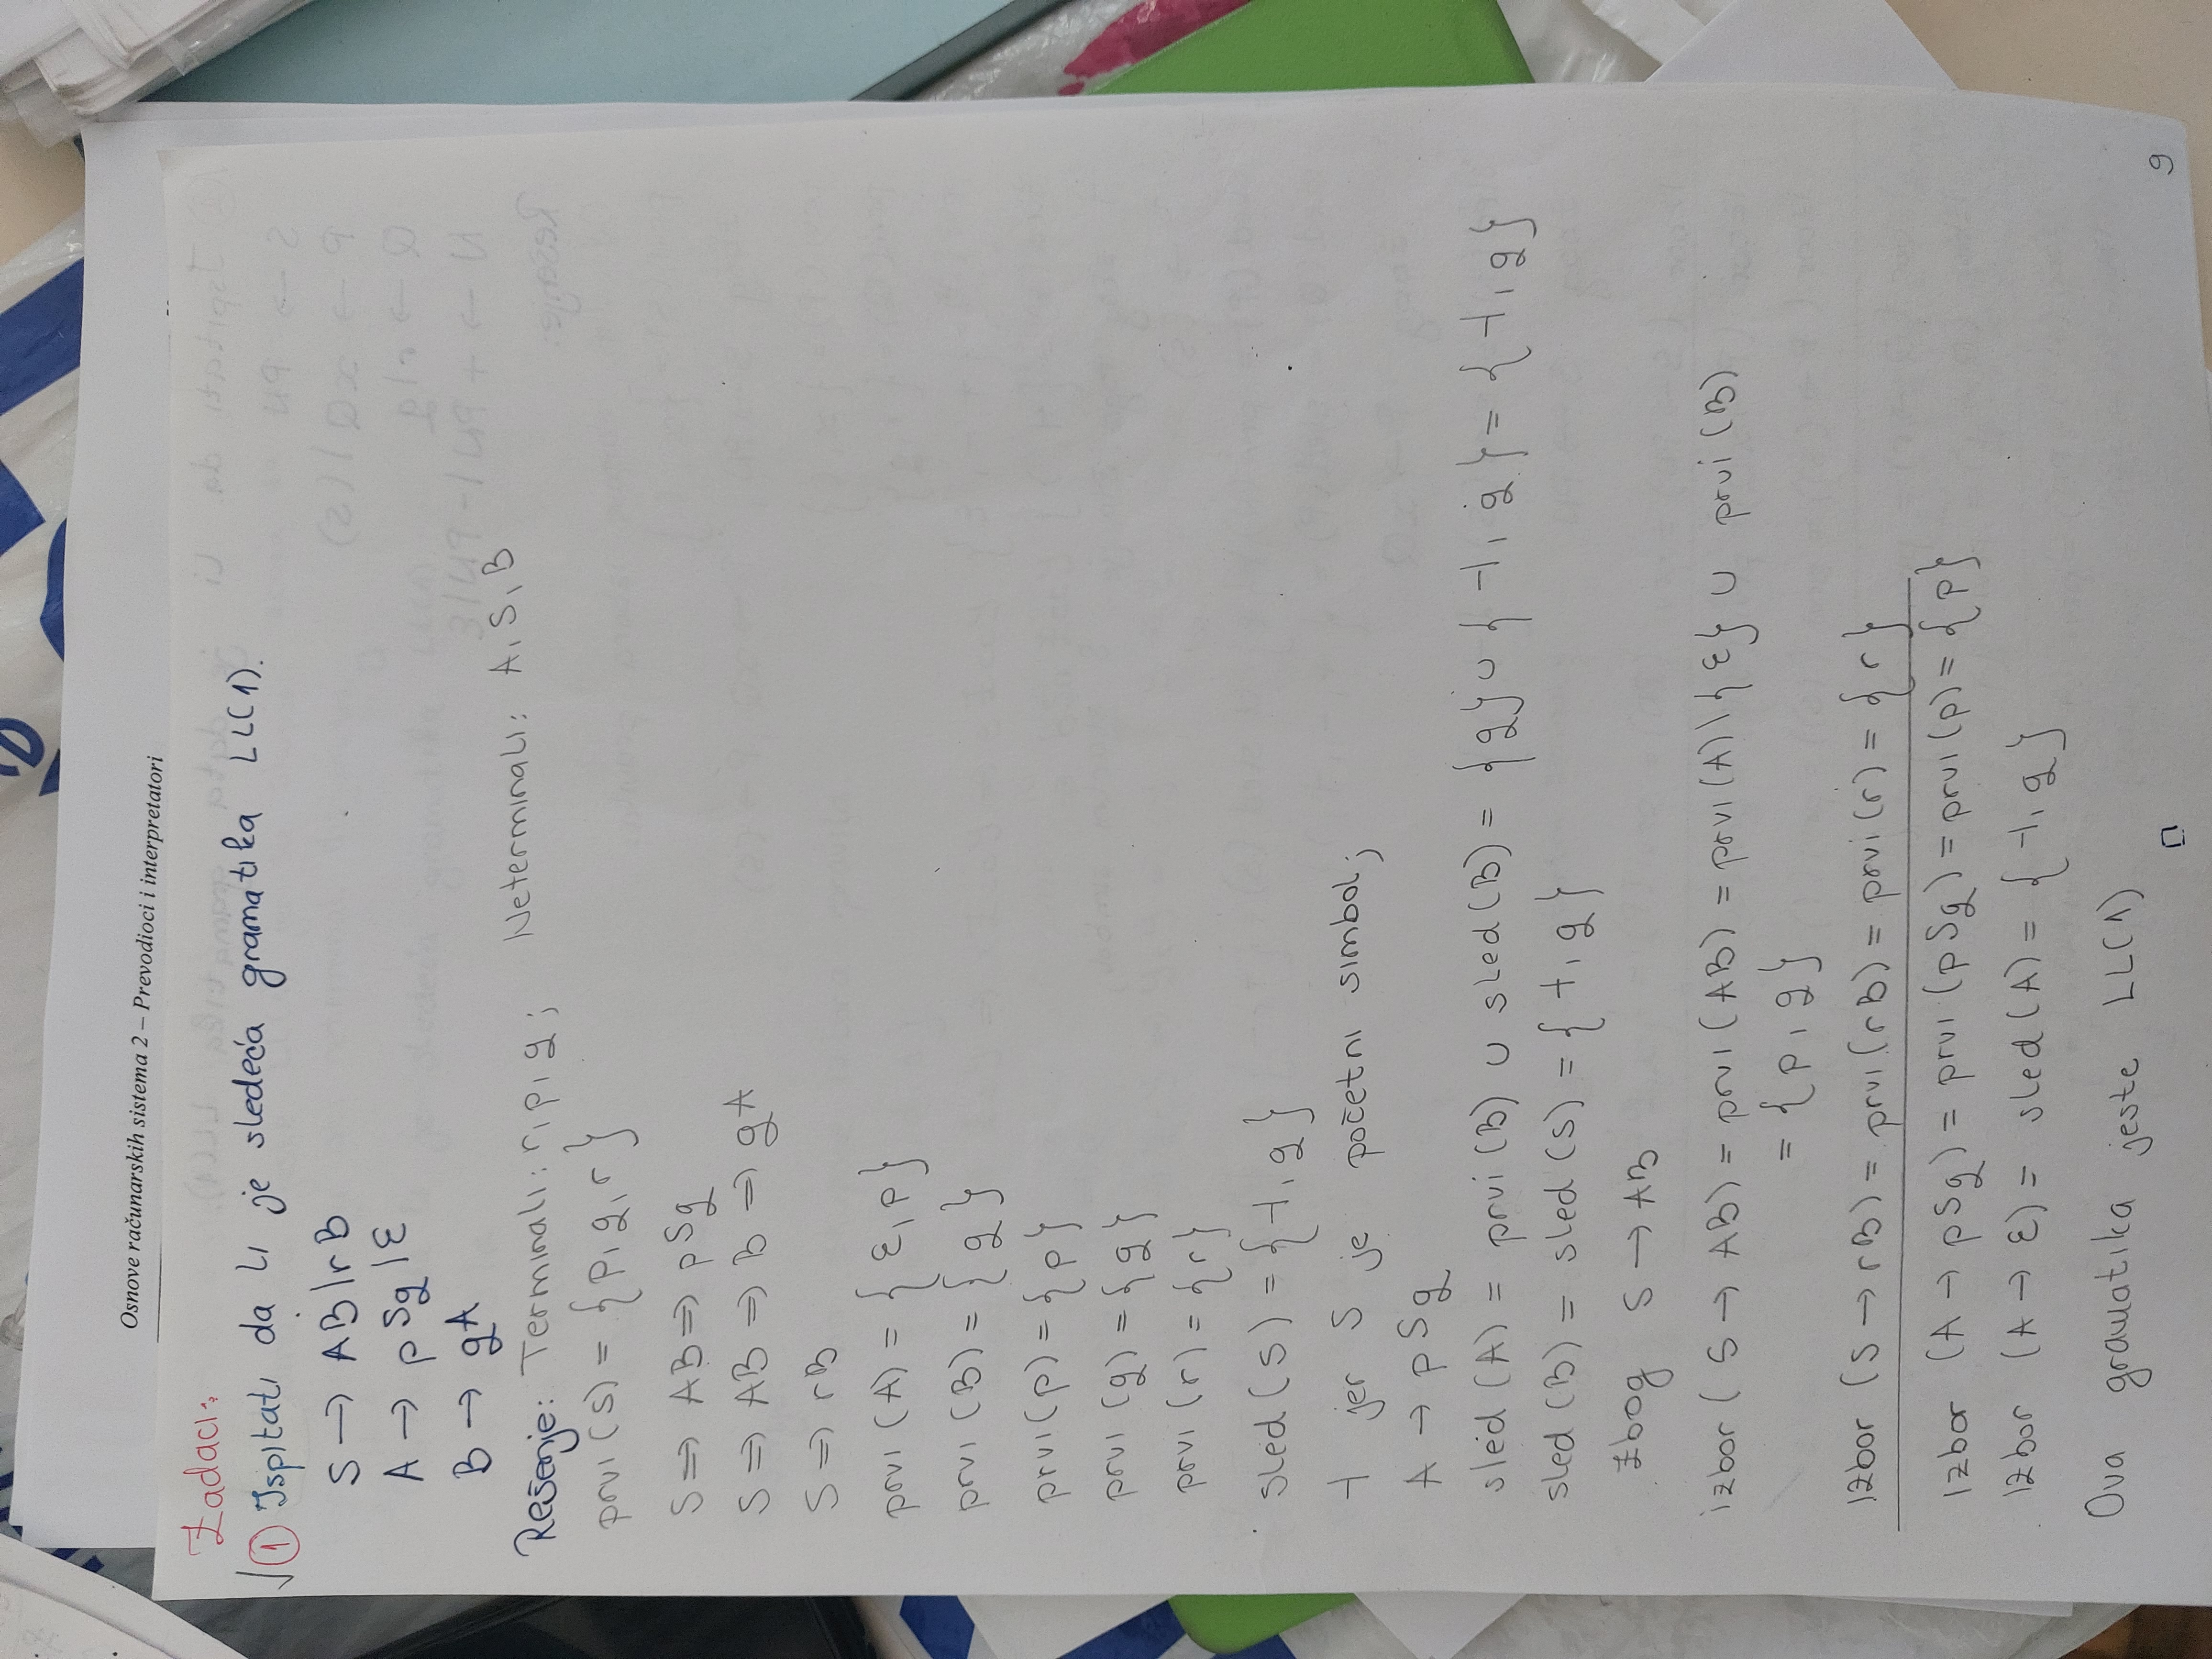 Osnove računarskih sistema 2 – Prevodioci i interpretatori
Zadaci:
√ 1 Ispitati da li je sledeća gramatika LL(1).
S → AB | rB
A → pSq | ε
B → qA
Rešenje: Terminali: r, p, q; Neterminali: A, S, B
prvi(S) = {p, q, r}
S ⇒ AB ⇒ pSq
S ⇒ AB ⇒ B ⇒ qA
S ⇒ rB
prvi(A) = {ε, p}
prvi(B) = {q}
prvi(p) = {p}
prvi(q) = {q}
prvi(r) = {r}
sled(S) = {⊣, q}
⊣ jer S je početni simbol;
A → pSq
sled(A) = prvi(B) ∪ sled(B) = {q} ∪ {⊣, q} = {⊣, q}
sled(B) = sled(S) = {⊣, q}
Zbog S → AB
izbor(S → AB) = prvi(AB) = prvi(A)\{ε} ∪ prvi(B)
= {p, q}
Izbor (S → rB) = prvi(rB) = prvi(r) = {r}
Izbor (A → pSq) = prvi(pSq) = prvi(p) = {p}
Izbor (A → ε) = sled(A) = {⊣, q}
Ova gramatika jeste LL(1)
9